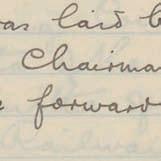 was laid
Chairma
forward